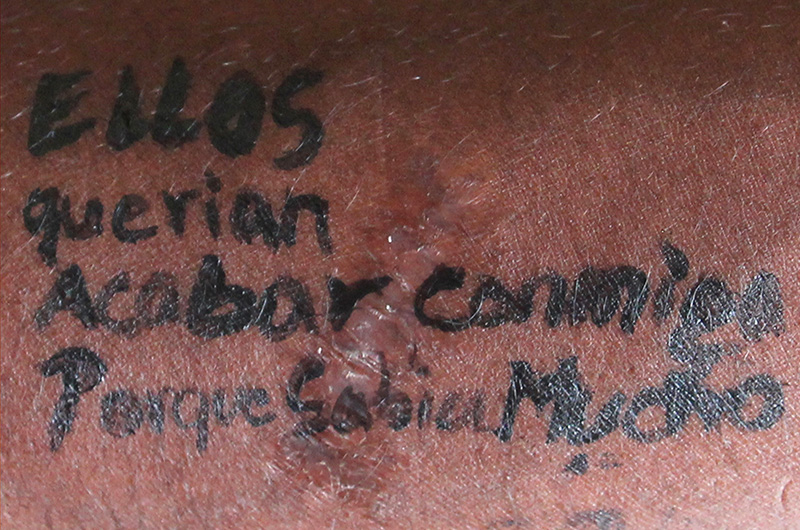 Ellos
querian
Acabar conmigo
Porque Sabia Mucho